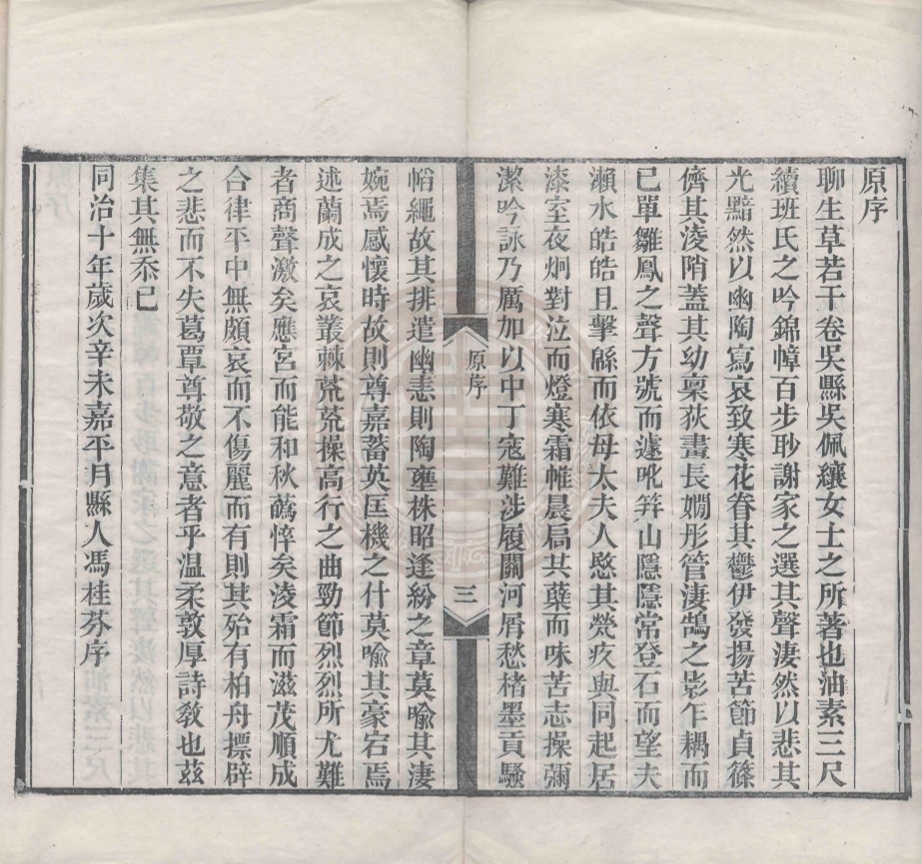 原序
聊生草若干卷吳縣吳佩纕女士之所著也油素三尺
續班氏之吟錦幛百步耖謝家之選其聲淒然以悲其
光黯然以幽陶寫哀致寒花眷其鬱伊發揚苦節貞篠
儕其淩陗蓋其幼稟荻畫長嫺彤管淒鵠之影乍耦而
已單雛鳳之聲方號而遽吪弁山隱隱常登石而望夫
瀨水皓皓且擊緜而依母太夫人愍其煢疚與同起居
漆室夜炯對泣而燈寒霜帷晨扃共蘗而味苦志操彌
潔吟詠乃厲加以中丁寇難涉履關河屑愁楮墨貢騷
原序
三
幍繩故其排遣幽恚則陶壅株昭逢紛之章莫喻其淒
婉焉感懷時故則尊嘉蓄英匡機之什莫喻其豪宕焉
述蘭成之哀叢棘荒荒操高行之曲勁節烈烈所尤難
者商聲激矣應宮而能和秋蘤悴矣淩霜而滋茂順成
合律平中無頗哀而不傷麗而有則其殆有柏舟摽辟
之悲而不失葛覃尊敬之意者乎溫柔敦厚詩教也茲
集其無忝已
同治十年歲次辛未嘉平月縣人馮桂芬序